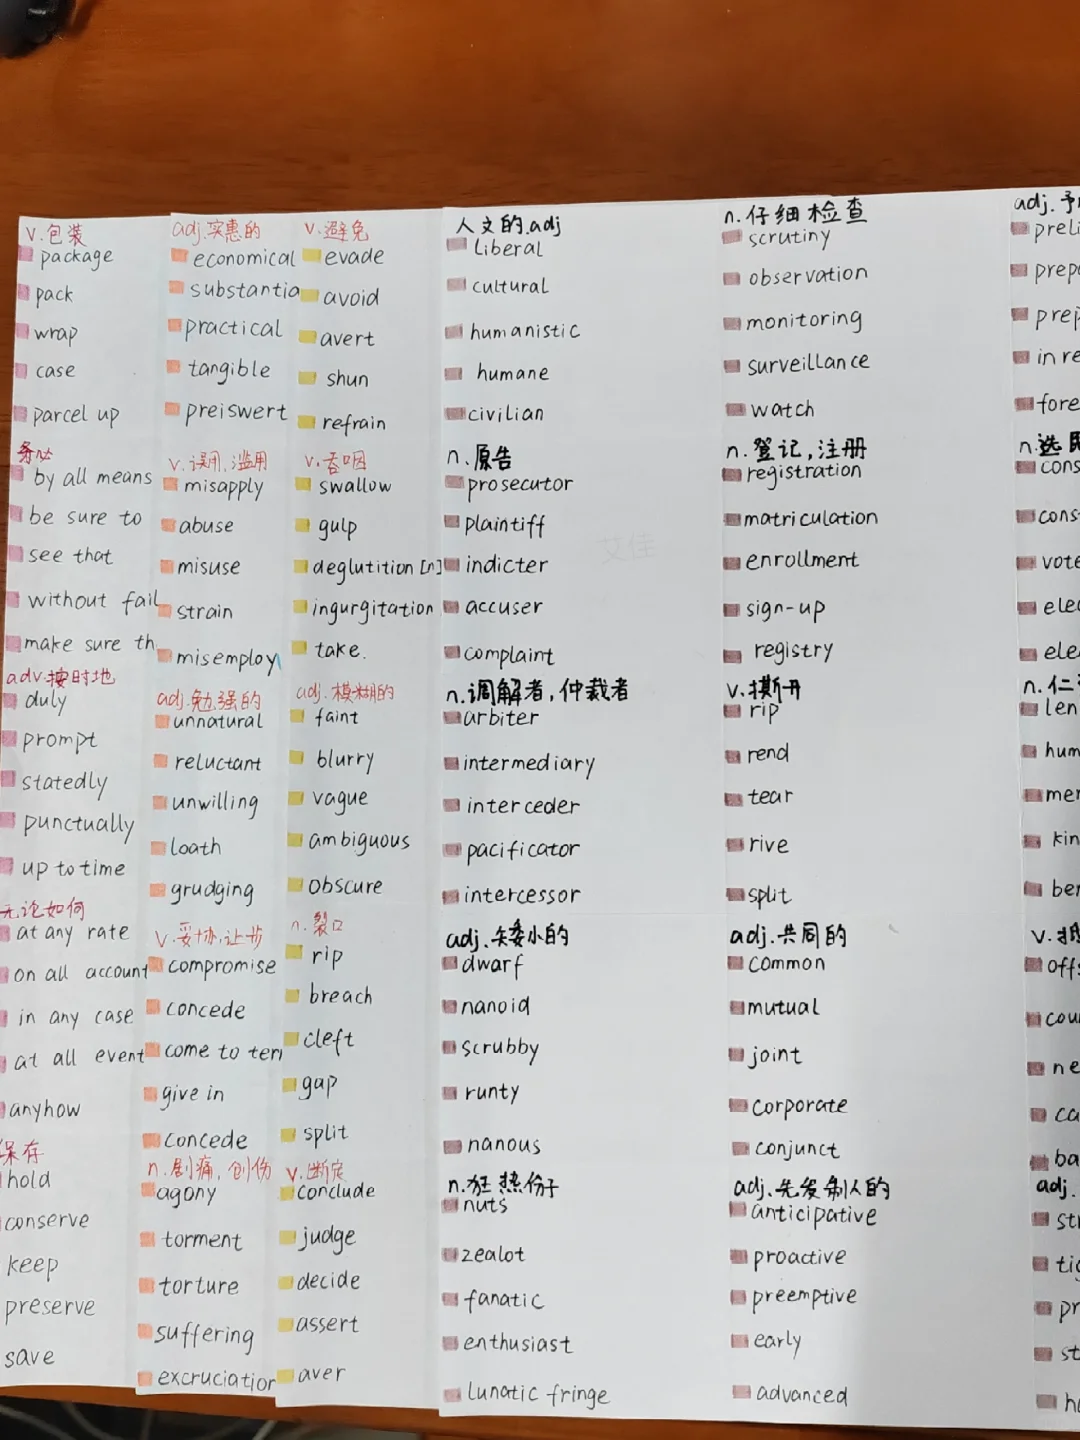 v.包装
package
pack
wrap
case
parcel up
务必
by all means
be sure to
see that
without fail
make sure th
adv.按时地
duly
prompt
statedly
punctually
up to time
无论如何
at any rate
on all account
in any case
at all event
anyhow
保存
hold
conserve
keep
preserve
save
adj.实惠的
economical
substantia
practical
tangible
preiswert
v.误用,滥用
misapply
abuse
misuse
strain
misemploy
adj.勉强的
unnatural
reluctant
unwilling
loath
grudging
v.妥协,让步
compromise
concede
come to ter
give in
concede
n.剧痛,创伤
agony
torment
torture
suffering
excruciation
v.避免
evade
avoid
avert
shun
refrain
v.吞咽
swallow
gulp
deglutition [n]
ingurgitation
take.
adj.模糊的
faint
blurry
vague
ambiguous
obscure
n.裂口
rip
breach
cleft
gap
split
v.断定
conclude
judge
decide
assert
aver
人文的.adj
liberal
cultural
humanistic
humane
civilian
n.原告
prosecutor
plaintiff
indicter
accuser
complaint
n.调解者,仲裁者
arbiter
intermediary
interceder
pacificator
intercessor
adj.矮小的
dwarf
nanoid
scrubby
runty
nanous
n.狂热份子
nuts
zealot
fanatic
enthusiast
lunatic fringe
艾佳
n.仔细检查
scrutiny
observation
monitoring
surveillance
watch
n.登记,注册
registration
matriculation
enrollment
sign-up
registry
v.撕开
rip
rend
tear
rive
split
adj.共同的
common
mutual
joint
corporate
conjunct
adj.先发制人的
anticipative
proactive
preemptive
early
advanced
adj.予
preli
prep
prep
in re
fore
n.选民
cons
cons
vote
ele
ele
n.仁
len
hum
mer
kin
ben
v.
offs
cou
ne
ca
ba
adj.
st
tig
pr
st
h